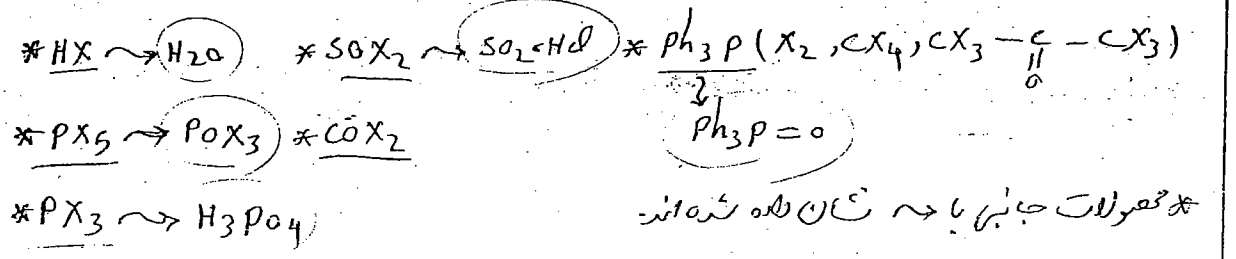 *HX ⇝ H2O *SOX2 ⇝ SO2،HCl *Ph3P(X2, CX4, CX3-C-CX3)
||
O
⇝
*PX5 ⇝ POX3 *COX2 Ph3P=O
*PX3 ⇝ H3PO4
*محصولات جانبی با ⇝ نشان داده شده اند.